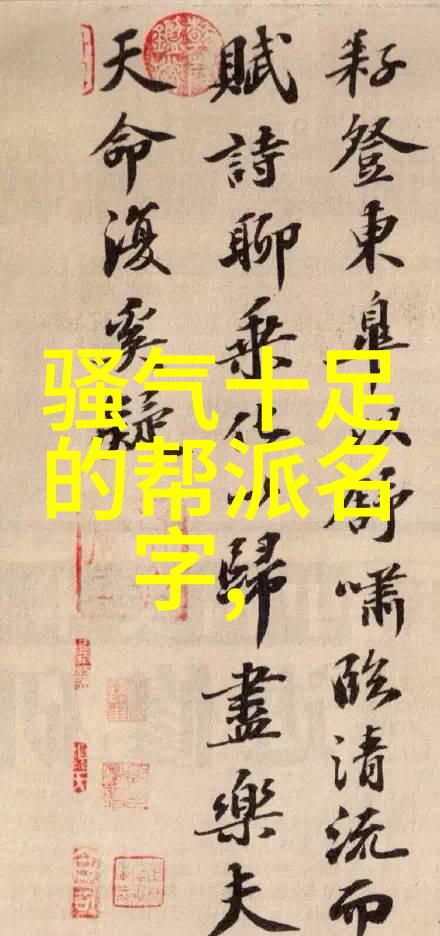 耔登東皋以舒嘯臨清流而
賦詩聊乘化以歸盡樂夫
天命復奚疑
骚气十足
的帮派名
字,